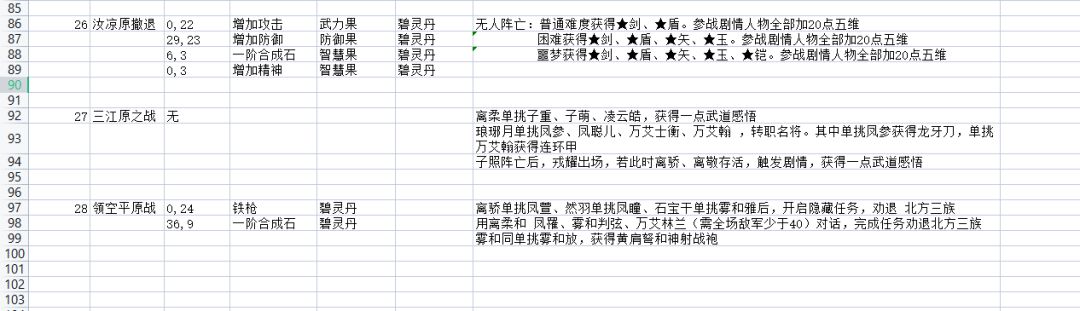 85
86 26 汝凉原撤退 0,22 增加攻击 武力果 碧灵丹 无人阵亡：普通难度获得★剑、★盾。参战剧情人物全部加20点五维
87 29,23 增加防御 防御果 碧灵丹 困难获得★剑、★盾、★矢、★玉。参战剧情人物全部加20点五维
88 6,3 一阶合成石 智慧果 碧灵丹 噩梦获得★剑、★盾、★矢、★玉、★铠。参战剧情人物全部加20点五维
89 0,3 增加精神 智慧果 碧灵丹
90
91
92 27 三江原之战 无 离柔单挑子重、子萌、凌云皓，获得一点武道感悟
93 琅琊月单挑凤参、凤聪儿、万艾士衡、万艾翰 ，转职名将。其中单挑凤参获得龙牙刀，单挑
万艾翰获得连环甲
94 子照阵亡后，戎耀出场，若此时离骄、离敬存活，触发剧情，获得一点武道感悟
95
96
97 28 领空平原战 0,24 铁枪 碧灵丹 离骄单挑凤萱、然羽单挑凤瞳、石宝干单挑雾和雅后，开启隐藏任务，劝退 北方三族
98 36,9 一阶合成石 碧灵丹 用离柔和 凤羅、雾和判弦、万艾林兰（需全场敌军少于40）对话，完成任务劝退北方三族
99 雾和同单挑雾和放，获得黄肩弩和神射战袍
100
101
102
103